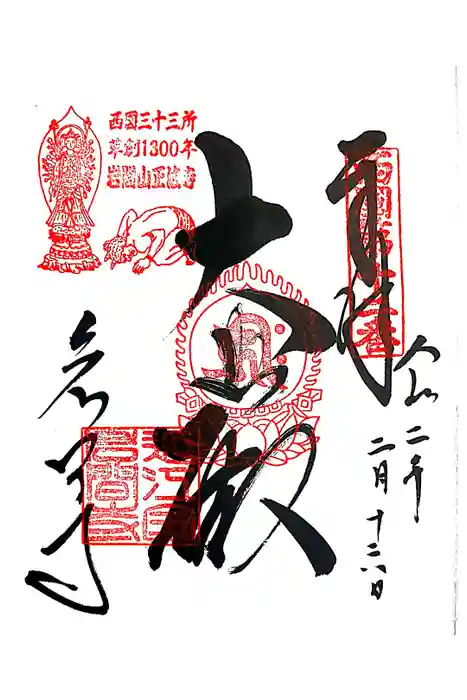 奉拝
西国第十二番
令和二年
二月十六日
大悲殿
西國三十三所
草創1300年
岩間山正法寺
岩間寺